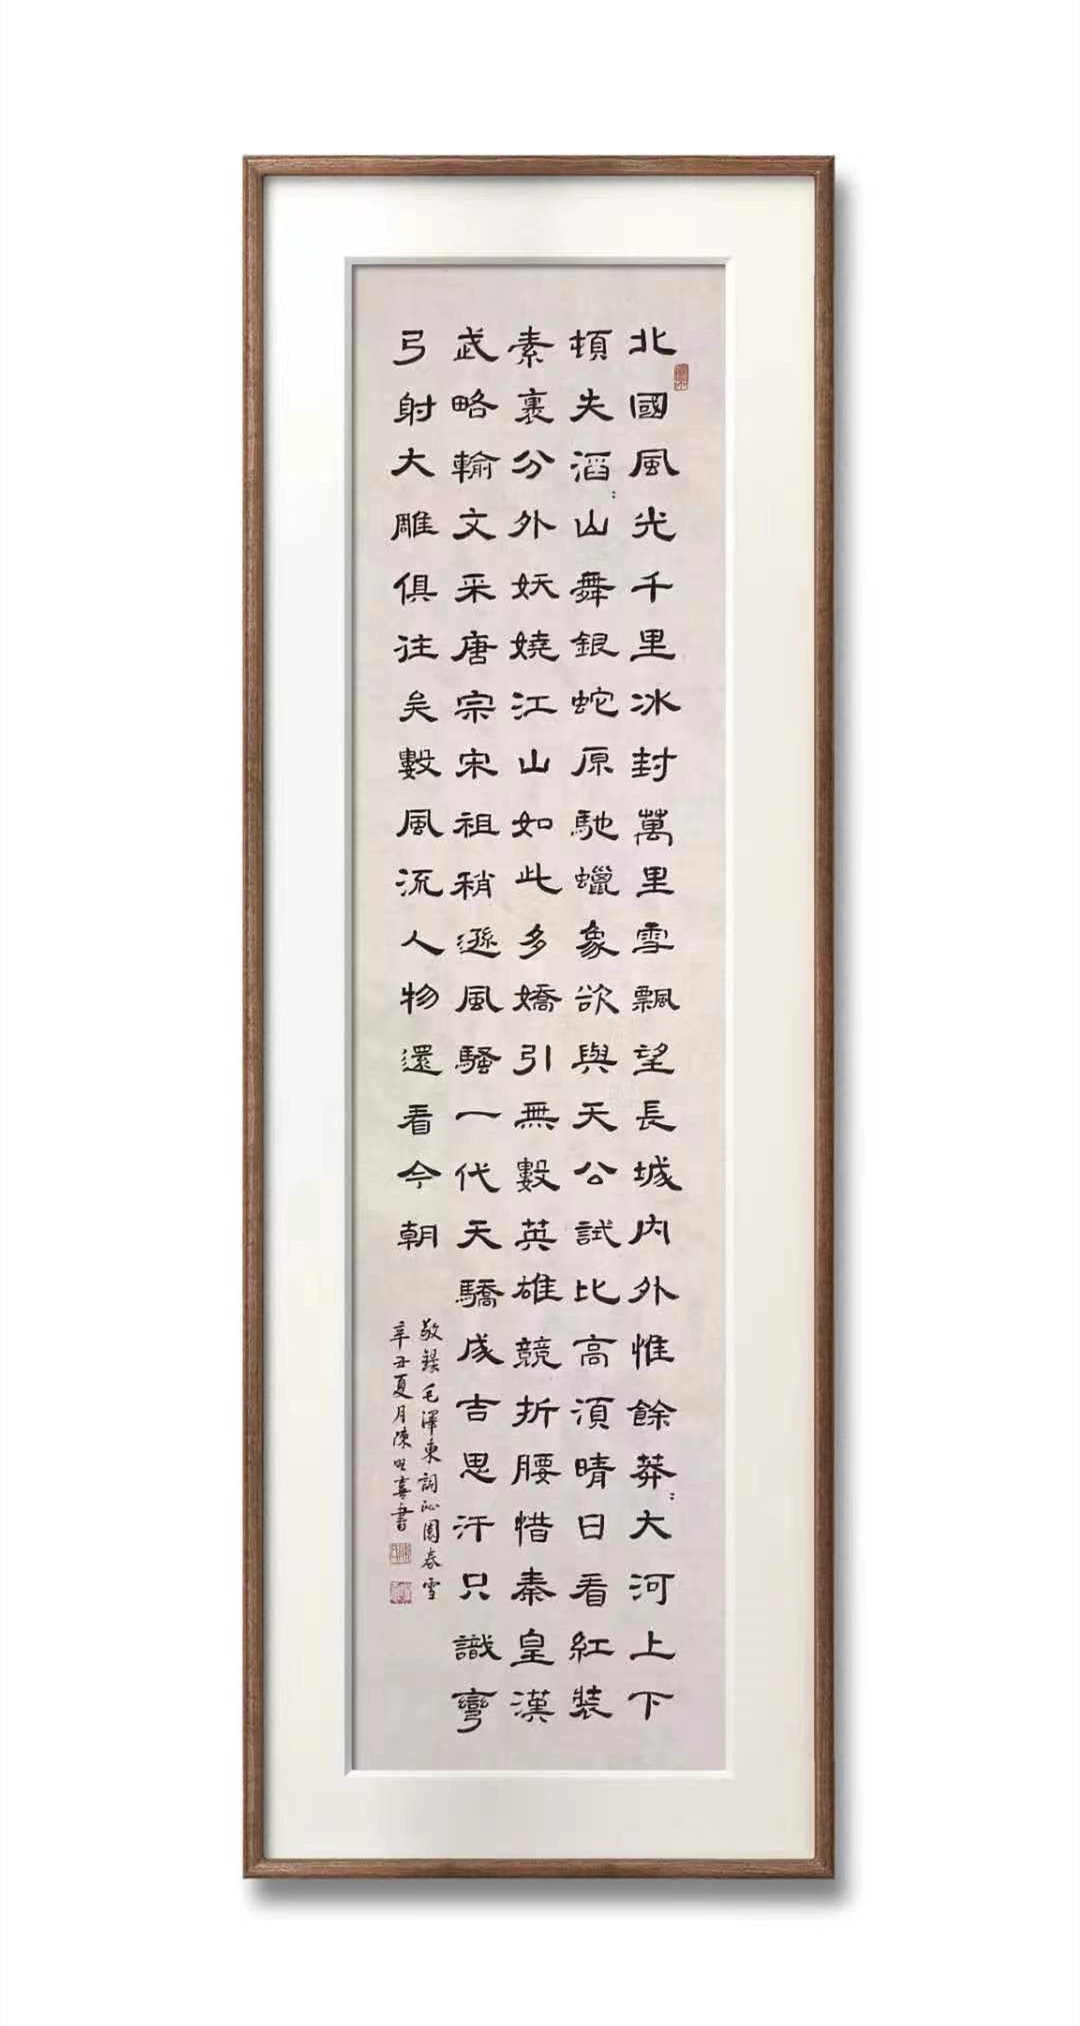 北國風光千里冰封萬里雪飄望長城內外惟餘莽:大河上下
頓失滔:山舞銀蛇原馳蠟象欲與天公試比高須晴日看紅裝
素裹分外妖嬈江山如此多嬌引無數英雄競折腰惜秦皇漢
武略輸文采唐宗宋祖稍遜風騷一代天驕成吉思汗只識彎
弓射大雕俱往矣數風流人物還看今朝
敬錄毛澤東詞沁園春雪
辛丑夏月陳喜書